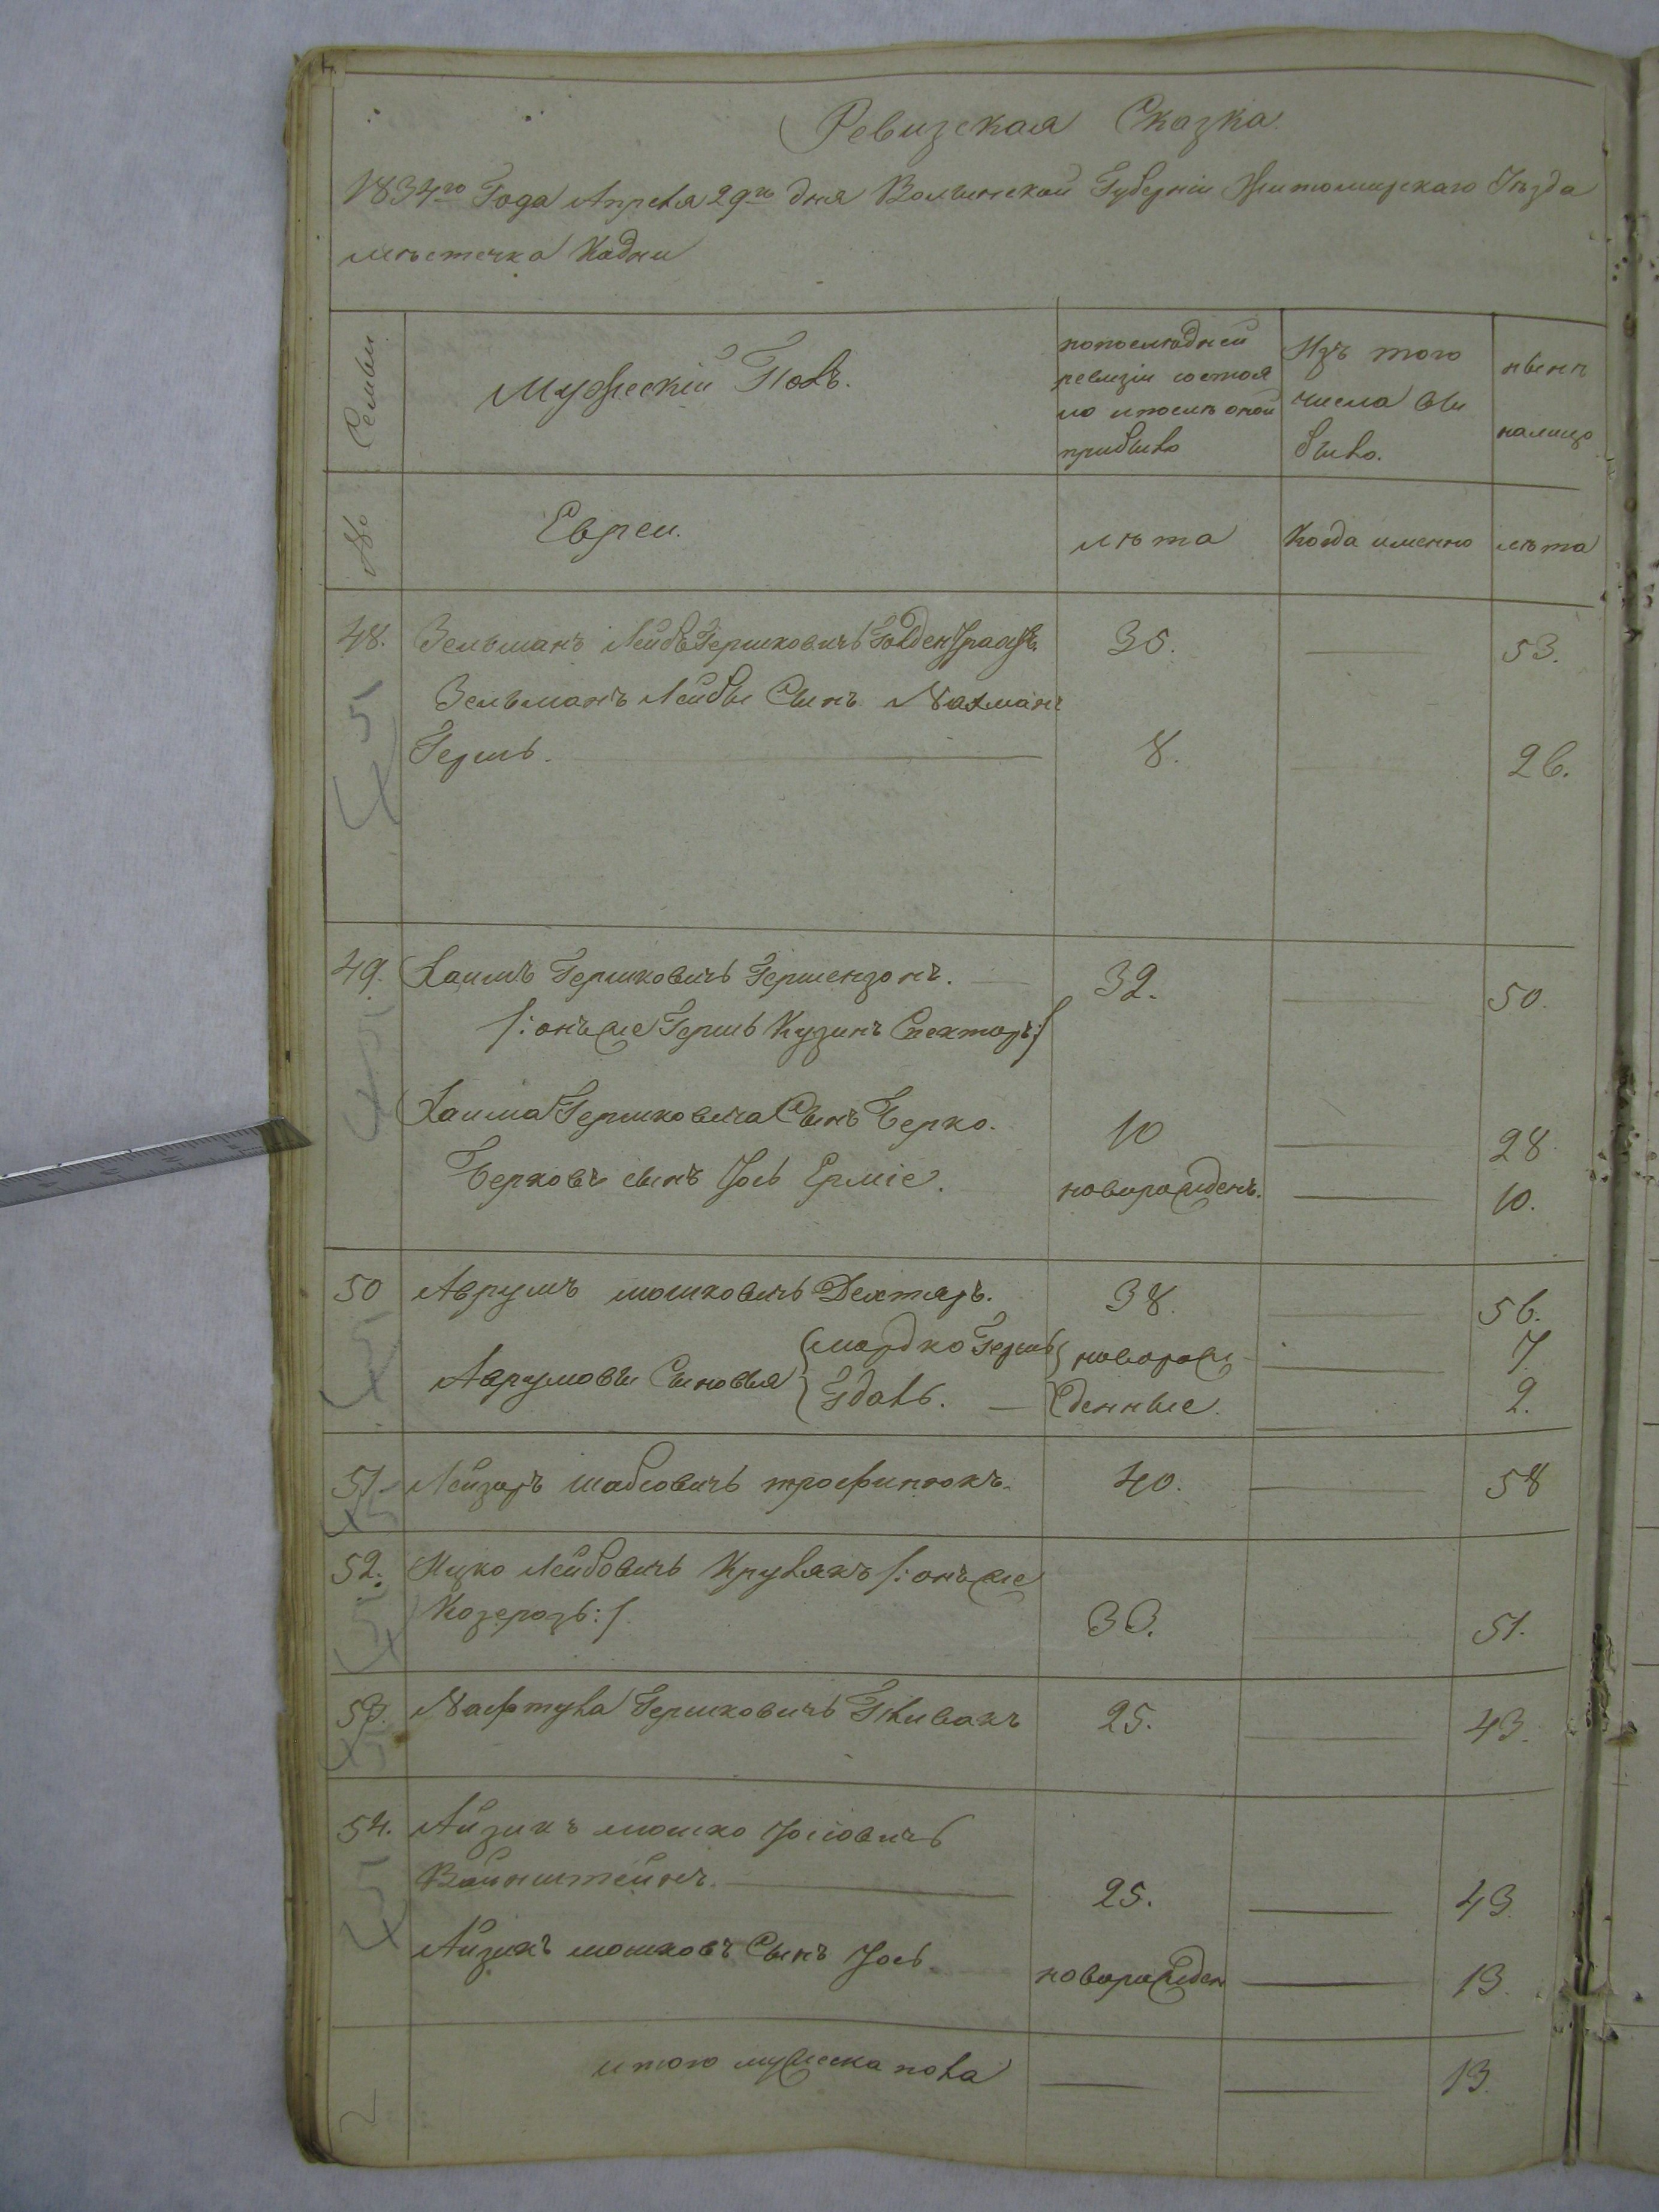 Ревизская Сказка
1834го Года Апреля 29го дня Волынской Губерніи Житомирскаго Уѣзда
мѣстечка Кодни
Семьи
Мужескій Полъ.
по последней ревизіи состояло и послѣ оной прибыло
Изъ того числа выбыло.
нынѣ налицо
№
Евреи.
лѣта
Когда именно
лѣта
48. Зельманъ Лейбъ Гершковичъ 35. 53.
Зельманъ Лейбы Сынъ Нахманъ
Гершъ. 8. 26.
49. Хаимъ Гершковичъ Гершензонъ. 32. 50.
/: онъ же Гершъ Кузинъ Спекторъ :/
Хаима Гершковича Сынъ Берко. 10 28
Берковъ сынъ Іось Ерміе. новорожденъ. 10.
50 Аврумъ Мошковичъ Дехтяръ. 38. 56.
Мордко Гершъ новорож 7.
Аврумовы Сыновья
Гдаль. денные. 2.
51. Лейзаръ Шабсовичъ Трофинюкъ. 40. 58
52. Ицко Лейбовичъ Крулякъ /: онъ же
Козерогъ :/ 33. 51.
53. Нафтула Гершковичъ Гливакъ 25. 43.
54. Айзикъ Мошко Іосіовичъ
Вайнштейнъ. 25. 43.
Айзикъ Мошковъ Сынъ Іось. новорожден 13.
итого мужеска пола 13.